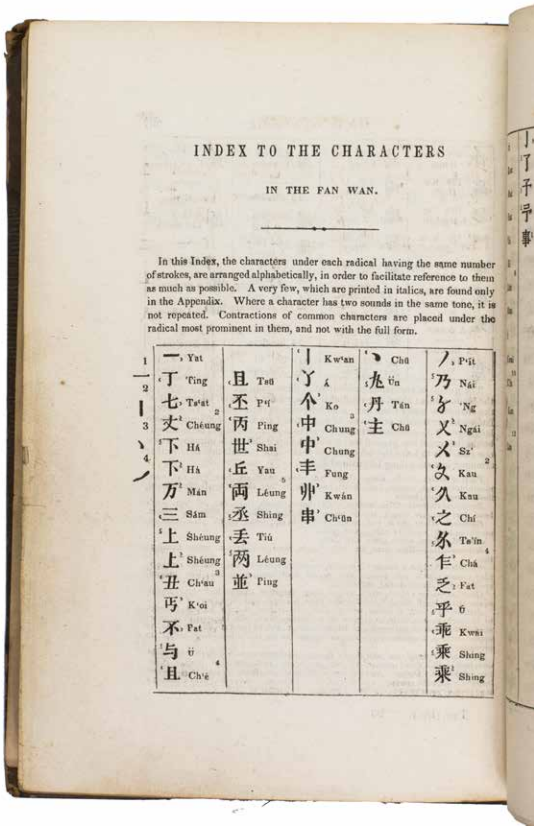 INDEX TO THE CHARACTERS
IN THE FAN WAN.
In this Index, the characters under each radical having the same number
of strokes, are arranged alphabetically, in order to facilitate reference to them
as much as possible. A very few, which are printed in italics, are found only
in the Appendix. Where a character has two sounds in the same tone, it is
not repeated. Contractions of common characters are placed under the
radical most prominent in them, and not with the full form.
1
一
2
丨
3
丶
4
丿
一 Yat
丁 Ting
2
七 Ts‘at
丈 Chéung
下 Há
下 Há
万 Mán
三 Sám
上 Shéung
上 Shéung
3
丑 Ch‘au
丐 K‘oi
不 Pat
与 Ü
4
且 Ch‘é
且 Tsü
丕 P‘í
丙 Ping
世 Shai
丘 Yau
5
両 Léung
丞 Shing
丟 Tiú
两 Léung
並 Ping
丨 Kw‘an
丫 Á
个 Ko
3
中 Chung
中 Chung
丰 Fung
丱 Kwán
串 Ch‘ün
丶 Chü
丸 Ün
丹 Tán
主 Chü
丿 P‘ít
乃 Nái
'Ng
乂 Ngái
Sz’
2
Kau
久 Kau
之 Chí
尓 Ts‘ín
4
乍 Chá
乏 Fat
乎 Ú
乖 Kwái
乘 Shing
乘 Shing
亅
了
子
予
事